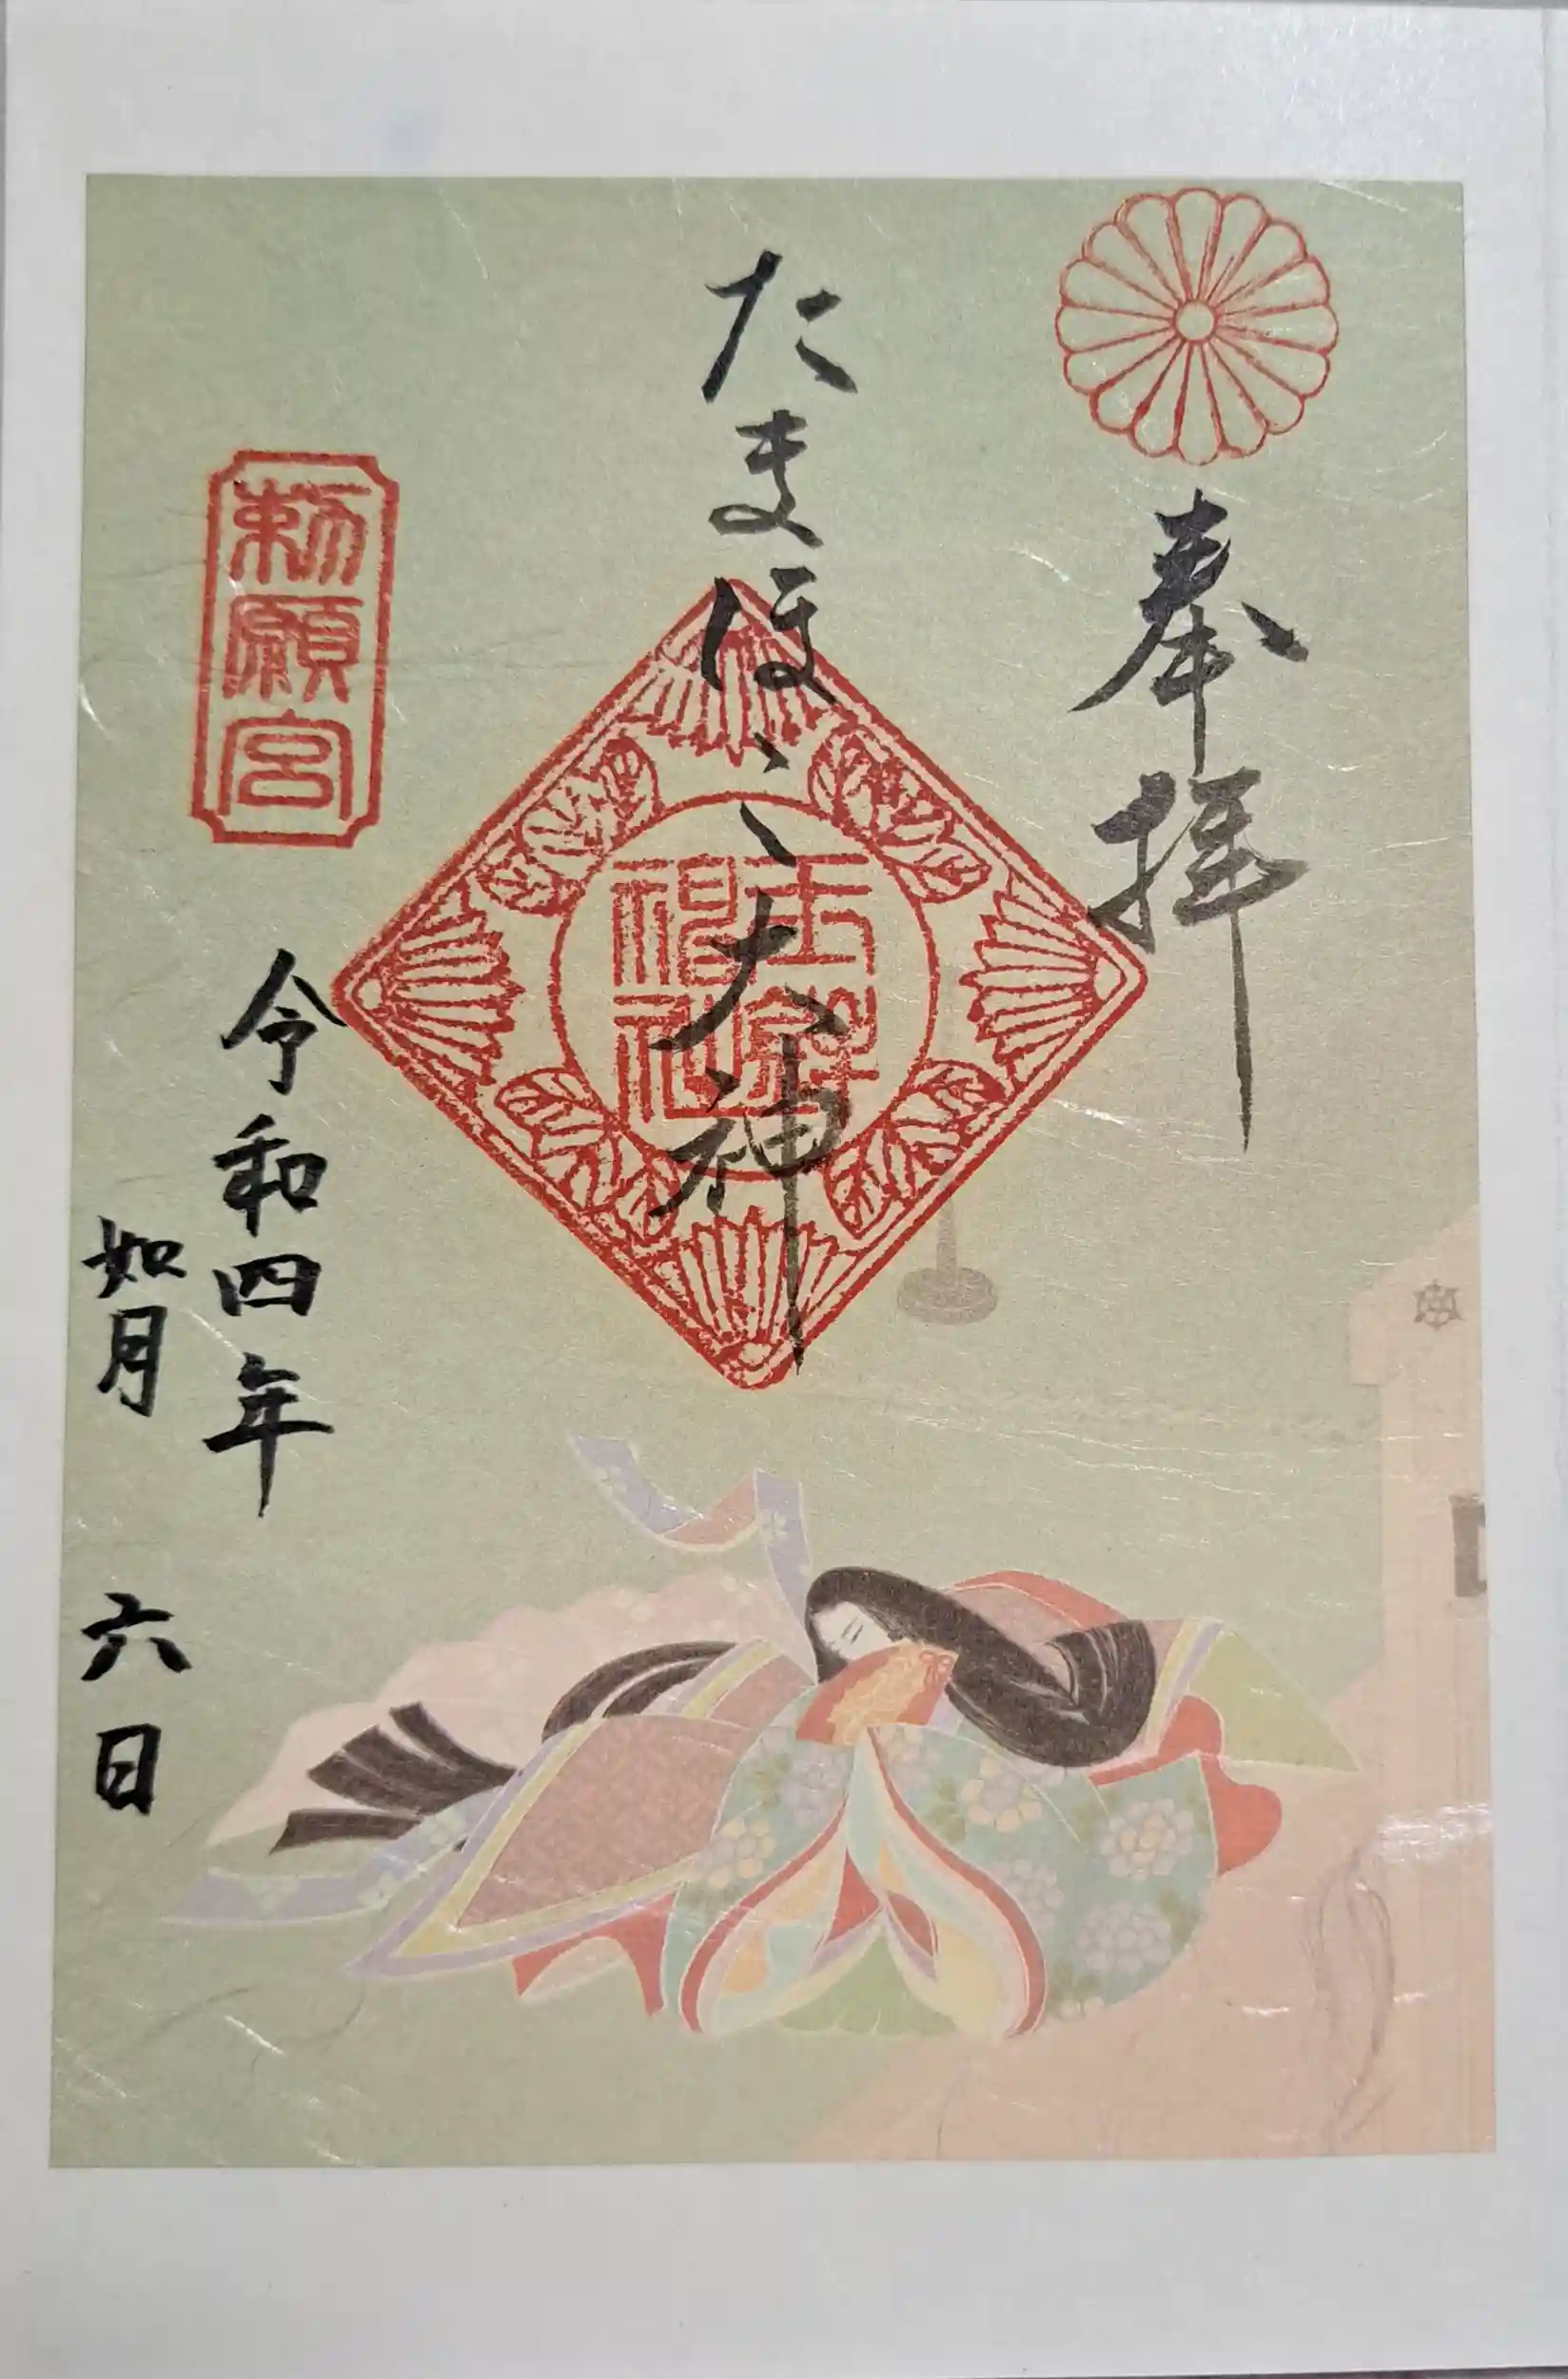 奉拝
たまほこ大神
玉鉾神社
勅願宮
令和四年
如月 六日